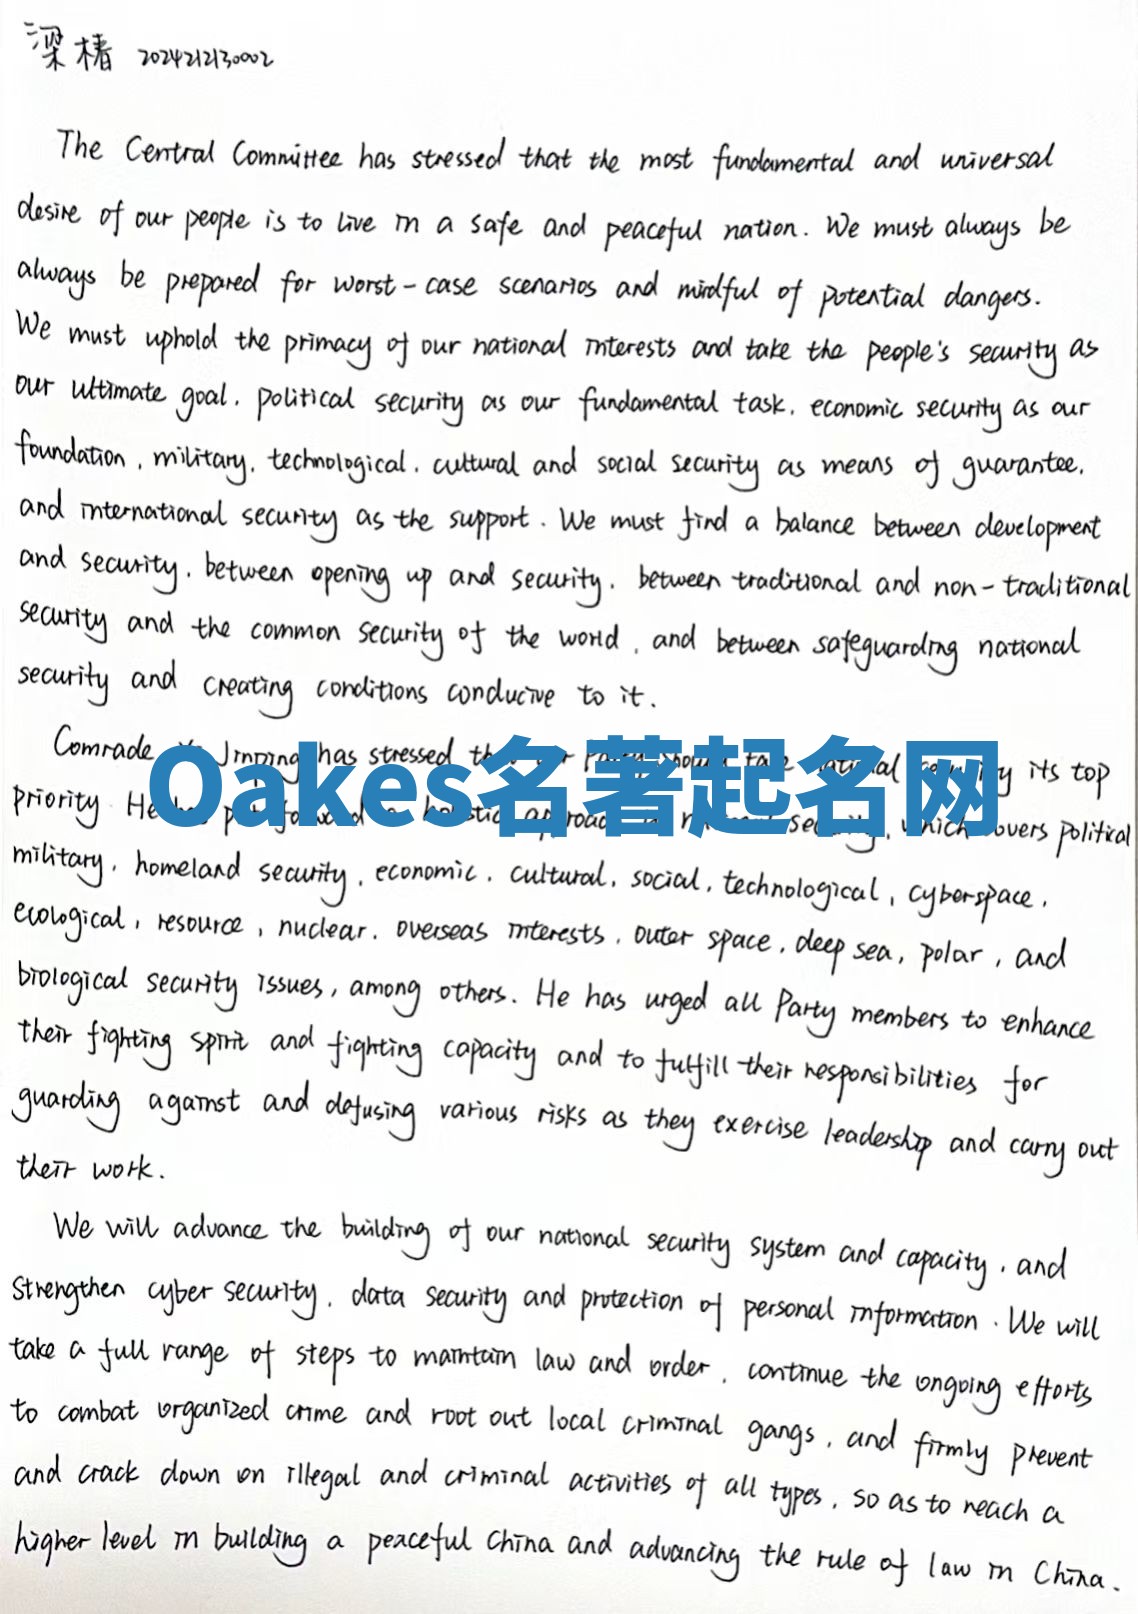 梁椿 2024212130002
The Central Committee has stressed that the most fundamental and universal
desire of our people is to live in a safe and peaceful nation. We must always be
always be prepared for worst-case scenarios and mindful of potential dangers.
We must uphold the primacy of our national interests and take the people's security as
our ultimate goal, political security as our fundamental task, economic security as our
foundation, military, technological, cultural and social security as means of guarantee,
and international security as the support. We must find a balance between development
and security, between opening up and security, between traditional and non-traditional
security and the common security of the world, and between safeguarding national
security and creating conditions conducive to it.
Comrade Jinping has stressed should take national security its top
Oakes名著起名网
priority. He put forward a holistic approach national security, which covers political
military, homeland security, economic, cultural, social, technological, cyberspace,
ecological, resource, nuclear, overseas interests, outer space, deep sea, polar, and
biological security issues, among others. He has urged all Party members to enhance
their fighting spirit and fighting capacity and to fulfill their responsibilities for
guarding against and defusing various risks as they exercise leadership and carry out
their work.
We will advance the building of our national security system and capacity, and
strengthen cyber security, data security and protection of personal information. We will
take a full range of steps to maintain law and order, continue the ongoing efforts
to combat organized crime and root out local criminal gangs, and firmly prevent
and crack down on illegal and criminal activities of all types, so as to reach a
higher level in building a peaceful China and advancing the rule of law in China.